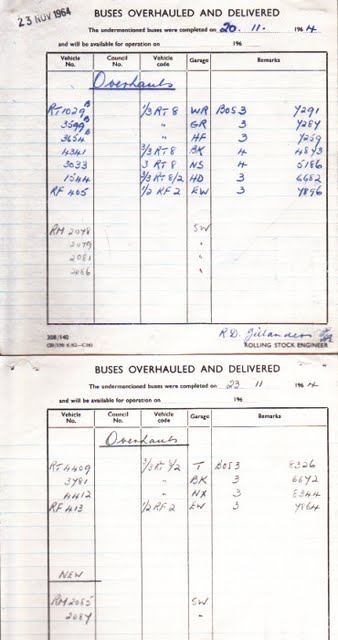 23 NOV 1964
BUSES OVERHAULED AND DELIVERED
The undermentioned buses were completed on 20. 11. 1964
and will be available for operation on 196
Vehicle No. Council No. Vehicle code Garage Remarks
Overhauls
RT 1029 B 1/3 RT 8 WR BOS 3 7291
3599 B " GR 3 7287
3654 B " HF 3 7259
4341 3/3 RT 8 BK 4 4873
3033 3 RT 8 NS 4 5186
1544 3/3 RT 8/2 HD 3 6682
RF 405 1/2 RF 2 EW 3 7896
RM 2078 SW
2079 "
2081 "
2086 "
R.D. Gillanders
308/140 ROLLING STOCK ENGINEER
BUSES OVERHAULED AND DELIVERED
The undermentioned buses were completed on 23 11 1964
and will be available for operation on 196
Vehicle No. Council No. Vehicle code Garage Remarks
Overhauls
RT 4409 3/3 RT 8/2 T BOS 3 8326
3781 " BK 3 6672
4412 " NX 3 8344
RF 413 1/2 RF 2 EW 3 7864
NEW
RM 2085 SW
2087 "